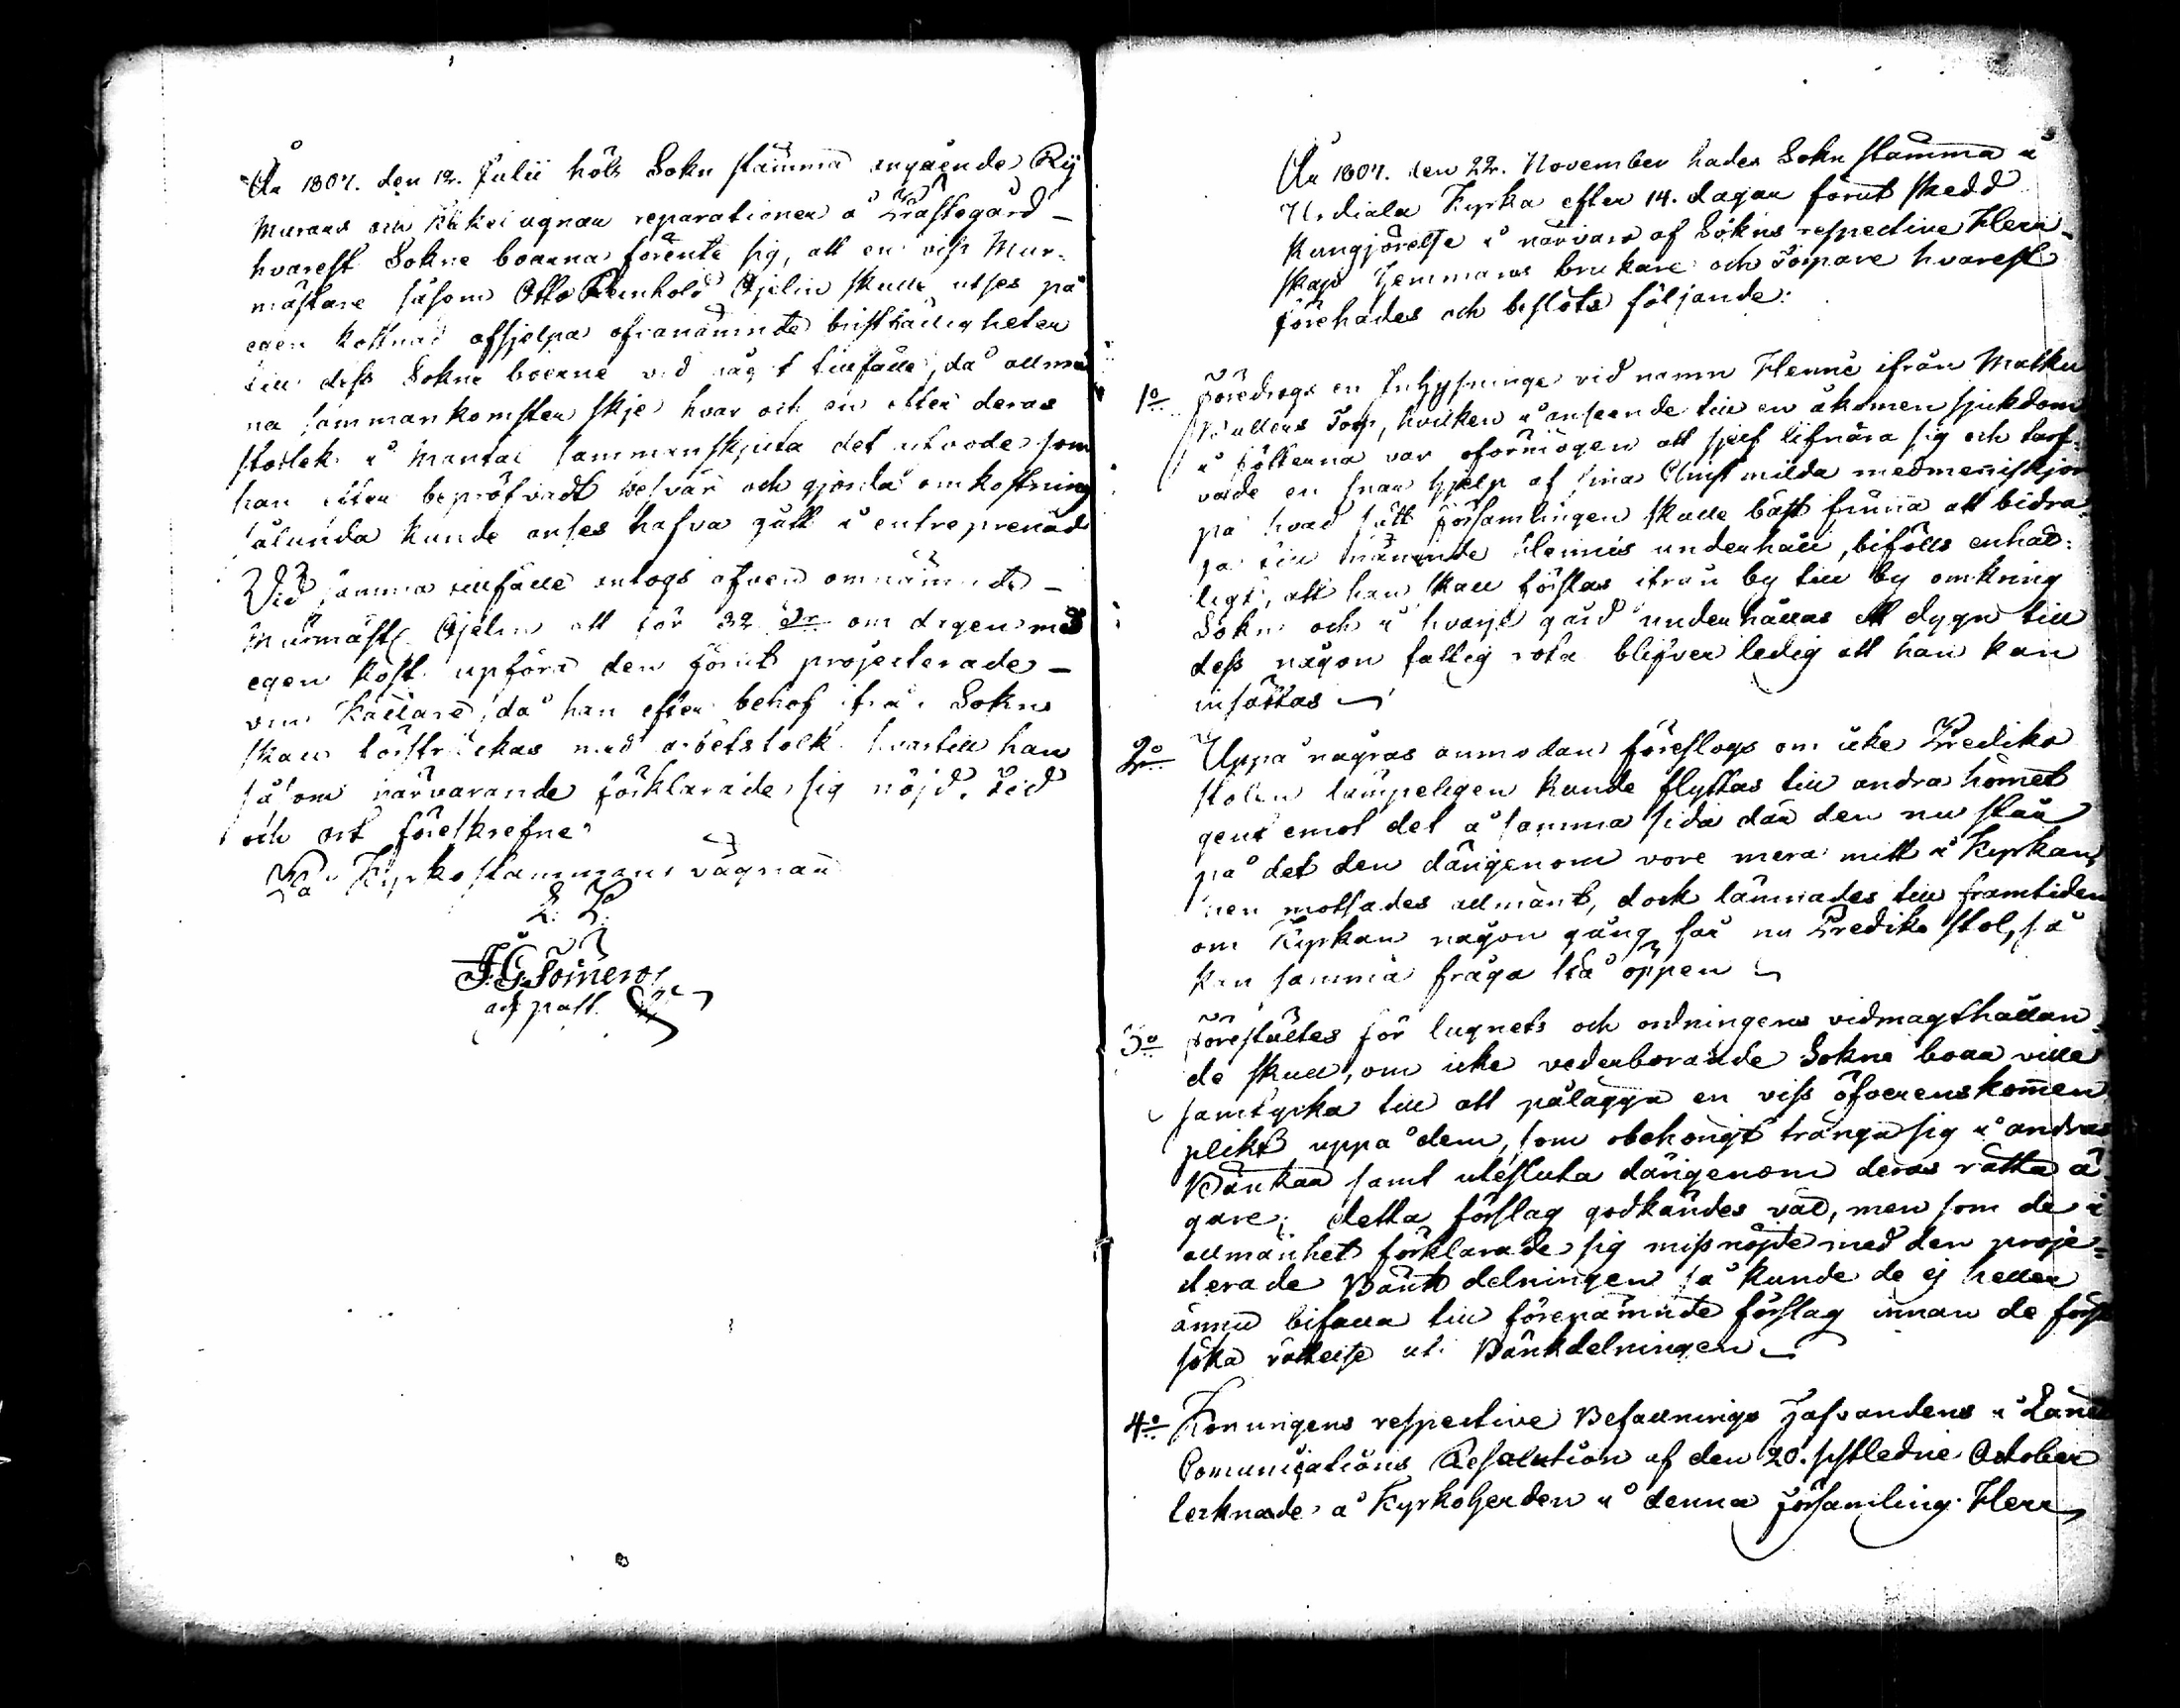 År 1807. den 12. Julii höls Sokn stämma angående Rij
Murens och Kakelugnar reparationer å Prästegård –
hvarest Sokne boerna förente sig, att en viss Mur-
mästare såsom Otto Reinhold Ojelin skulle utses på
egen kostnad afhjelpa ofvanämnde bristfälligheter
till dess Sokne boerne vid något tillfälle, då allmä
na sammankomster skje hvar och en efter deras
storlek i Mantal sammanskjuta det utvode som
han efter bepröfvadt besvär och gjorda omkostning
sålunda kunde anses hafva gått i entreprenad
Vid samma tillfälle antogs äfven omnämnde –
Murmäst. Ojelin att för 32 om dagen med
egen kost upföra den förut projecterade –
vin Källare, då han efter behof ifrån Sokne
skall förstreckas med arbetsfolk hvartill han
såsom närvarande förklarade sig nöjd. Tid
och ort föreskrefne
På Kyrkostämmans vägnar
L. L.
J. G. Poineros
adj past.
År 1807. den 22. November hades Sokn stämma i
Urdiala Kyrka efter 14. dagar förut skedd
Kungjörelse i närvaro af Sokns respective Herr-
skap Hemmans brukare och Torpare hvarest
förehades och beslöts följande:
1o Föredrogs en Inhysninge vid namn Henric ifrån Matku
Torp, hvilken i anseende till en åkommen sjukdom
i fötterna var oförmögen att sjelf lifnära sig och tarf-
vade en snar hjelp af sina Christ milda medmenniskjor
på hvad sätt Församlingen skulle bäst finna att bidra-
ga till nämnde Henrics underhåll, bifölls enhäl-
ligt, att han skall förslas ifrån by till by omkring
Sokn och i hvarje gård underhållas ett dygn till
dess någon fattig rota blifver ledig att han kan
insättas
2o Uppå någras anmodan föreslogs om icke Prediko
stolen lämpeligen kunde flyttas till andra hörnet
gent emot det å samma sida där den nu står
på det den därigenom vore mera mitt i Kyrkan,
men motsades allmänt, dock lämnades till framtiden
om Kyrkan någon gång får ny Prediko stol, så
kan samma fråga stå öppen
3o Föreställtes för lugnets och ordningens vidmagthållan-
de skull, om icke vederbörande Sokne boar ville
samtycka till att pålägga en viss öfverenskommen
plikt uppå dem, som obehörigt tränga sig i andras
Bänkar samt utesluta därigenom deras rätta ä-
gare; detta förslag godkändes väl, men som de i
allmänhet förklarade sig missnöjde med den projec-
terade Bänkdelningen så kunde de ej heller
ännu bifalla till förenämnde förslag innan de först
söka rättelse uti Bänkdelningen
4o Konungens respective Befallnings Hafvandens i Länet
Comunications Resolution af den 20. sistledne October
tecknade å Kyrkoherden i denna Församling Herr